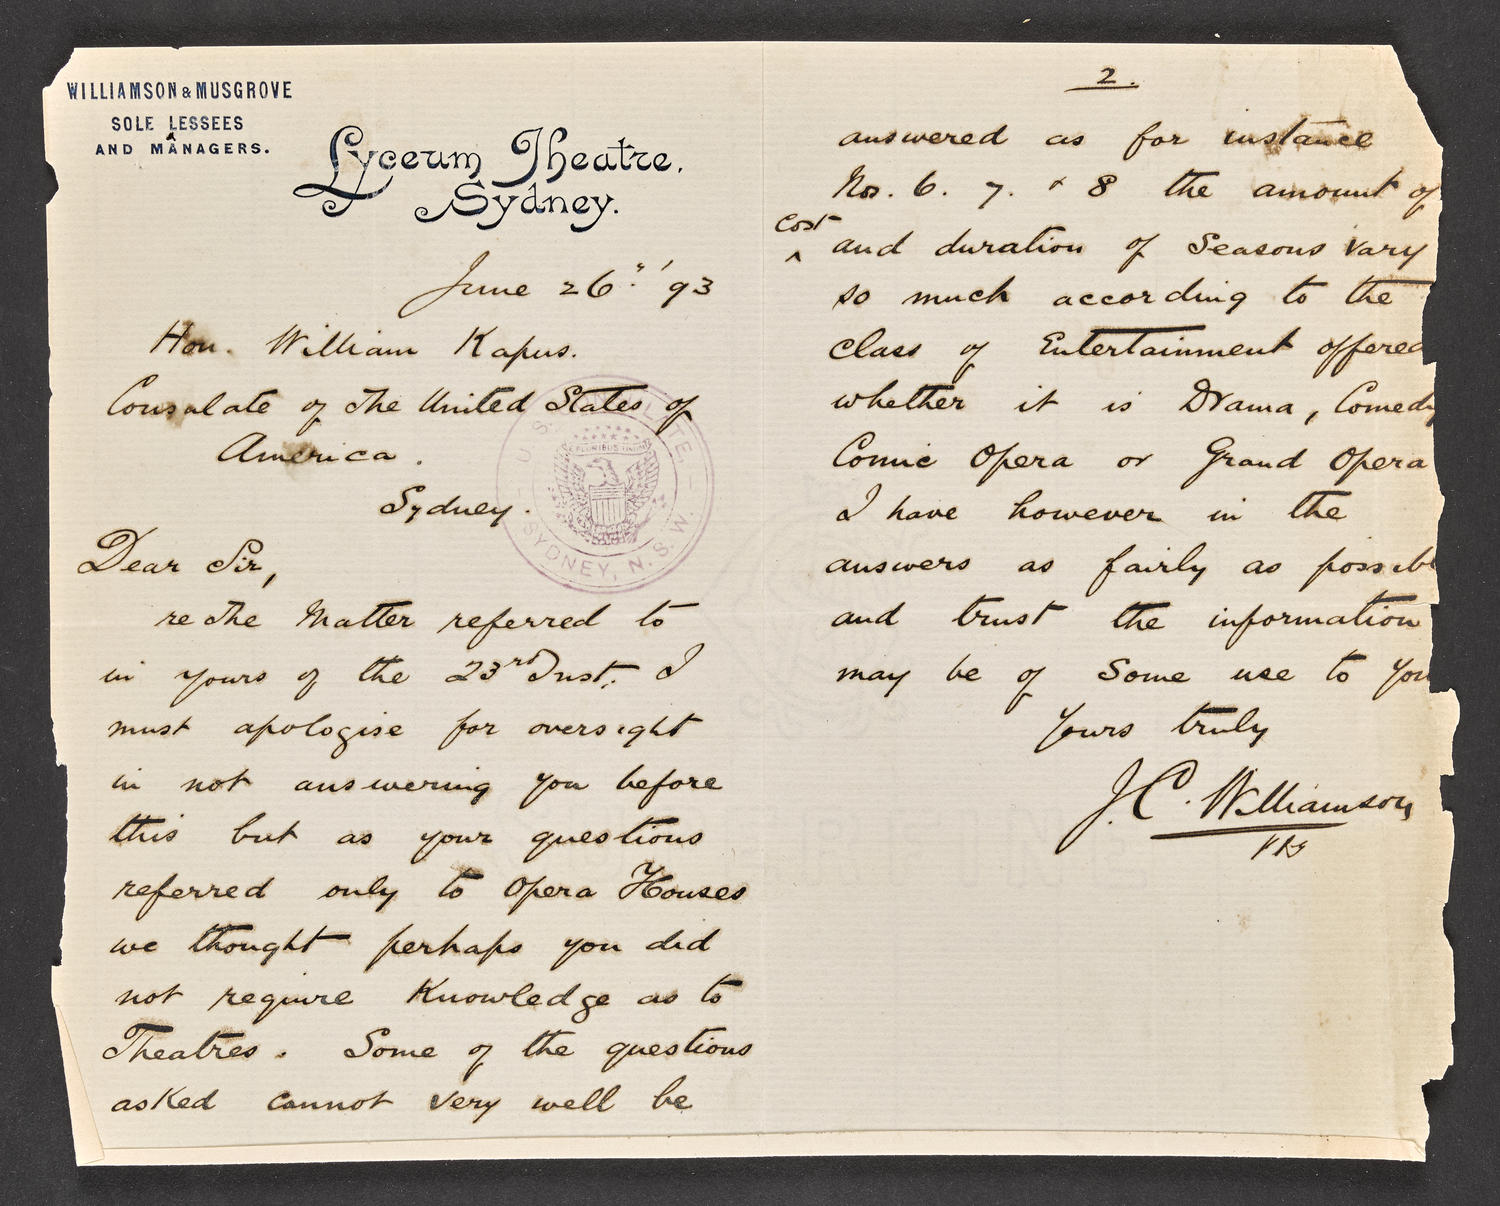 WILLIAMSON & MUSGROVE
SOLE LESSEES
AND MANAGERS.
Lyceum Theatre,
Sydney.
June 26" '93
Hon. William Kapus.
Consulate of the United States of
America.
Sydney.
U.S. CONSULATE,
E PLURIBUS UNUM
SYDNEY, N.S.W.
Dear Sir,
re the Matter referred to
in yours of the 23rd Inst. I
must apologise for oversight
in not answering you before
this but as your questions
referred only to Opera Houses
we thought perhaps you did
not require Knowledge as to
Theatres. Some of the questions
asked cannot very well be
2.
answered as for instance
Nos. 6. 7. & 8 the amount of
cost
^ and duration of Seasons vary
so much according to the
class of Entertainment offered
whether it is Drama, Comedy
Comic Opera or Grand Opera
I have however in the
answers as fairly as possibl
and trust the information
may be of some use to you
Yours truly
J.C. Williamson